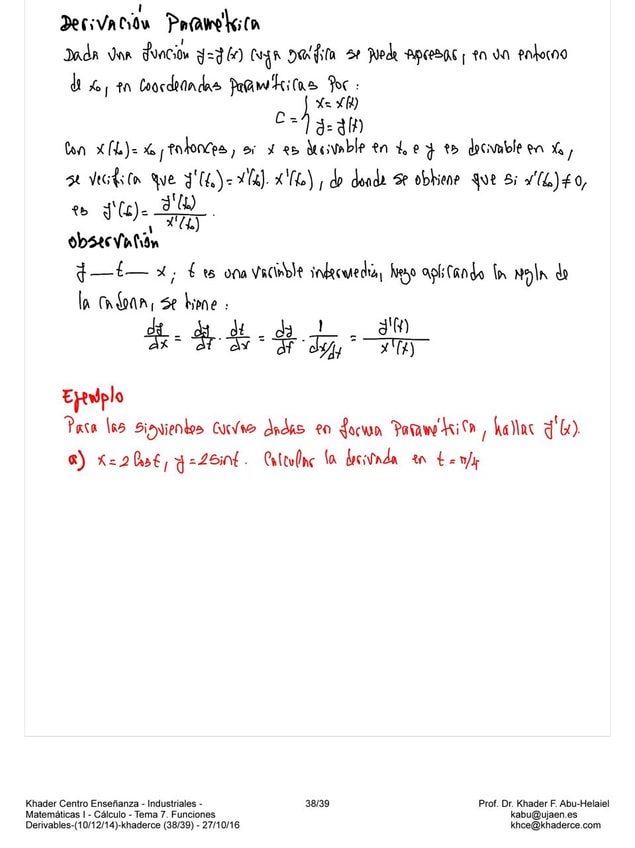 Derivación Paramétrica
Dada una función y=y(x) cuya gráfica se puede expresar, en un entorno
de x₀, en coordenadas paramétricas por:
C = { x = x(t)
y = y(t)
Con x(t₀) = x₀, entonces, si x es derivable en t₀ e y es derivable en x₀,
se verifica que y'(t₀) = x'(t₀). x'(t₀), de donde se obtiene que si x'(t₀) ≠ 0,
es y'(t₀) = y'(t₀)/x'(t₀).
Observación
y — t — x; t es una variable intermedia, luego aplicando la regla de
la cadena, se tiene:
dy/dx = dy/dt · dt/dx = dy/dt · 1/(dx/dt) = y'(t)/x'(t)
Ejemplo
Para las siguientes curvas dadas en forma paramétrica, hallar y'(x).
a) x = 2 Cost, y = 2 Sint. Calcular la derivada en t = π/4
Khader Centro Enseñanza - Industriales -
Matemáticas I - Cálculo - Tema 7. Funciones
Derivables-(10/12/14)-khaderce (38/39) - 27/10/16
38/39
Prof. Dr. Khader F. Abu-Helaiel
kabu@ujaen.es
khce@khaderce.com